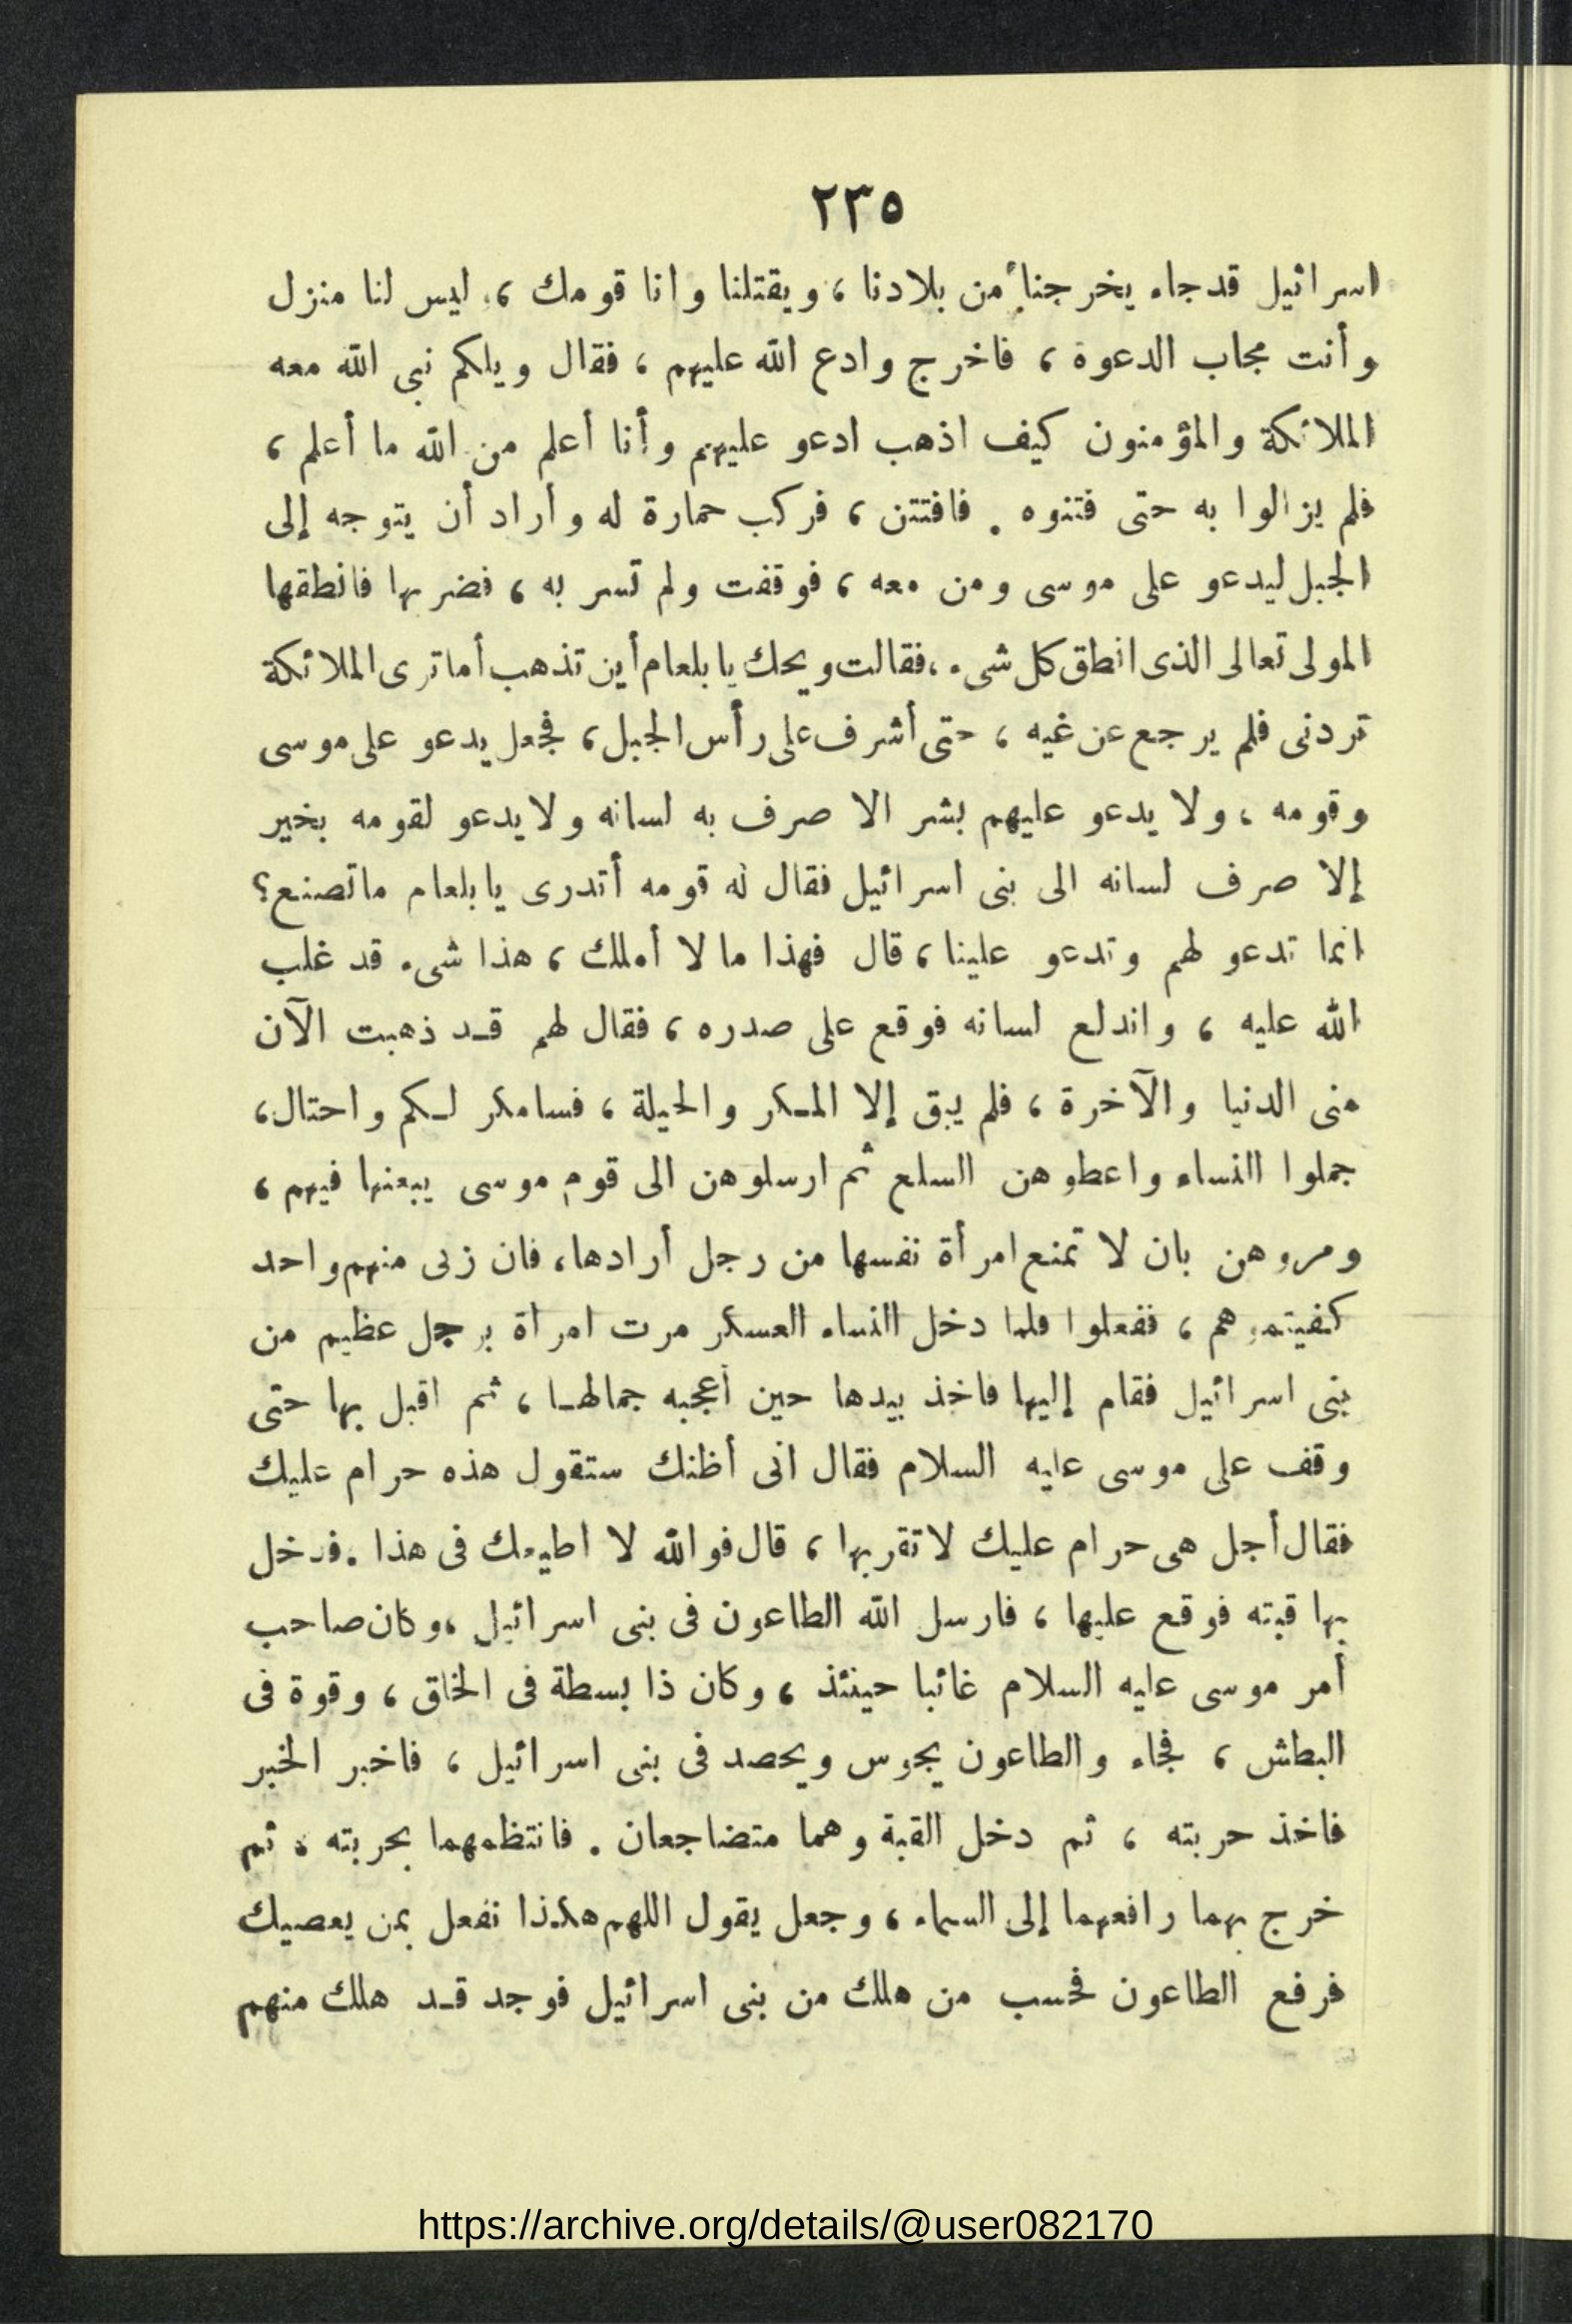 ٢٣٥
اسرائيل قد جاء يخرجنا من بلادنا ، ويقتلنا وانا قومك ، ليس لنا منزل
وأنت مجاب الدعوة ، فاخرج وادع الله عليهم ، فقال ويلكم نبى الله معه
الملائكة والمؤمنون كيف اذهب ادعو عليهم وأنا أعلم من الله ما أعلم ،
فلم يزالوا به حتى فتنوه . فافتتن ، فركب حمارة له وأراد أن يتوجه إلى
الجبل ليدعو على موسى ومن معه ، فوقفت ولم تسر به ، فضربها فانطقها
المولى تعالى الذى انطق كل شىء ، فقالت ويحك يا بلعام أين تذهب أما ترى الملائكة
تردنى فلم يرجع عن غيه ، حتى أشرف على رأس الجبل ، فجعل يدعو على موسى
وقومه ، ولا يدعو عليهم بشر الا صرف به لسانه ولا يدعو لقومه بخير
إلا صرف لسانه الى بنى اسرائيل فقال له قومه أتدرى يا بلعام ما تصنع؟
انما تدعو لهم وتدعو علينا ، قال فهذا ما لا أملك ، هذا شىء قد غلب
الله عليه ، واندلع لسانه فوقع على صدره ، فقال لهم قد ذهبت الآن
منى الدنيا والآخرة ، فلم يبق إلا المكر والحيلة ، فسامكر لكم واحتال ،
جملوا النساء واعطوهن السلع ثم ارسلوهن الى قوم موسى يبعنها فيهم ،
ومروهن بان لا تمنع امرأة نفسها من رجل أرادها ، فان زنى منهم واحد
كفيتموهم ، ففعلوا فلما دخل النساء العسكر مرت امرأة برجل عظيم من
بنى اسرائيل فقام إليها فاخذ بيدها حين أعجبه جمالها ، ثم اقبل بها حتى
وقف على موسى عليه السلام فقال انى أظنك ستقول هذه حرام عليك
فقال أجل هى حرام عليك لا تقربها ، قال فوالله لا اطيعك فى هذا . فدخل
بها قبته فوقع عليها ، فارسل الله الطاعون فى بنى اسرائيل ، وكان صاحب
أمر موسى عليه السلام غائبا حينئذ ، وكان ذا بسطة فى الخلق ، وقوة فى
البطش ، فجاء والطاعون يجوس ويحصد فى بنى اسرائيل ، فاخبر الخبر
فاخذ حربته ، ثم دخل القبة وهما متضاجعان . فانتظمهما بحربته ، ثم
خرج بهما رافعهما إلى السماء ، وجعل يقول اللهم هكذا نفعل بمن يعصيك
فرفع الطاعون فحسب من هلك من بنى اسرائيل فوجد قد هلك منهم
https://archive.org/details/@user082170